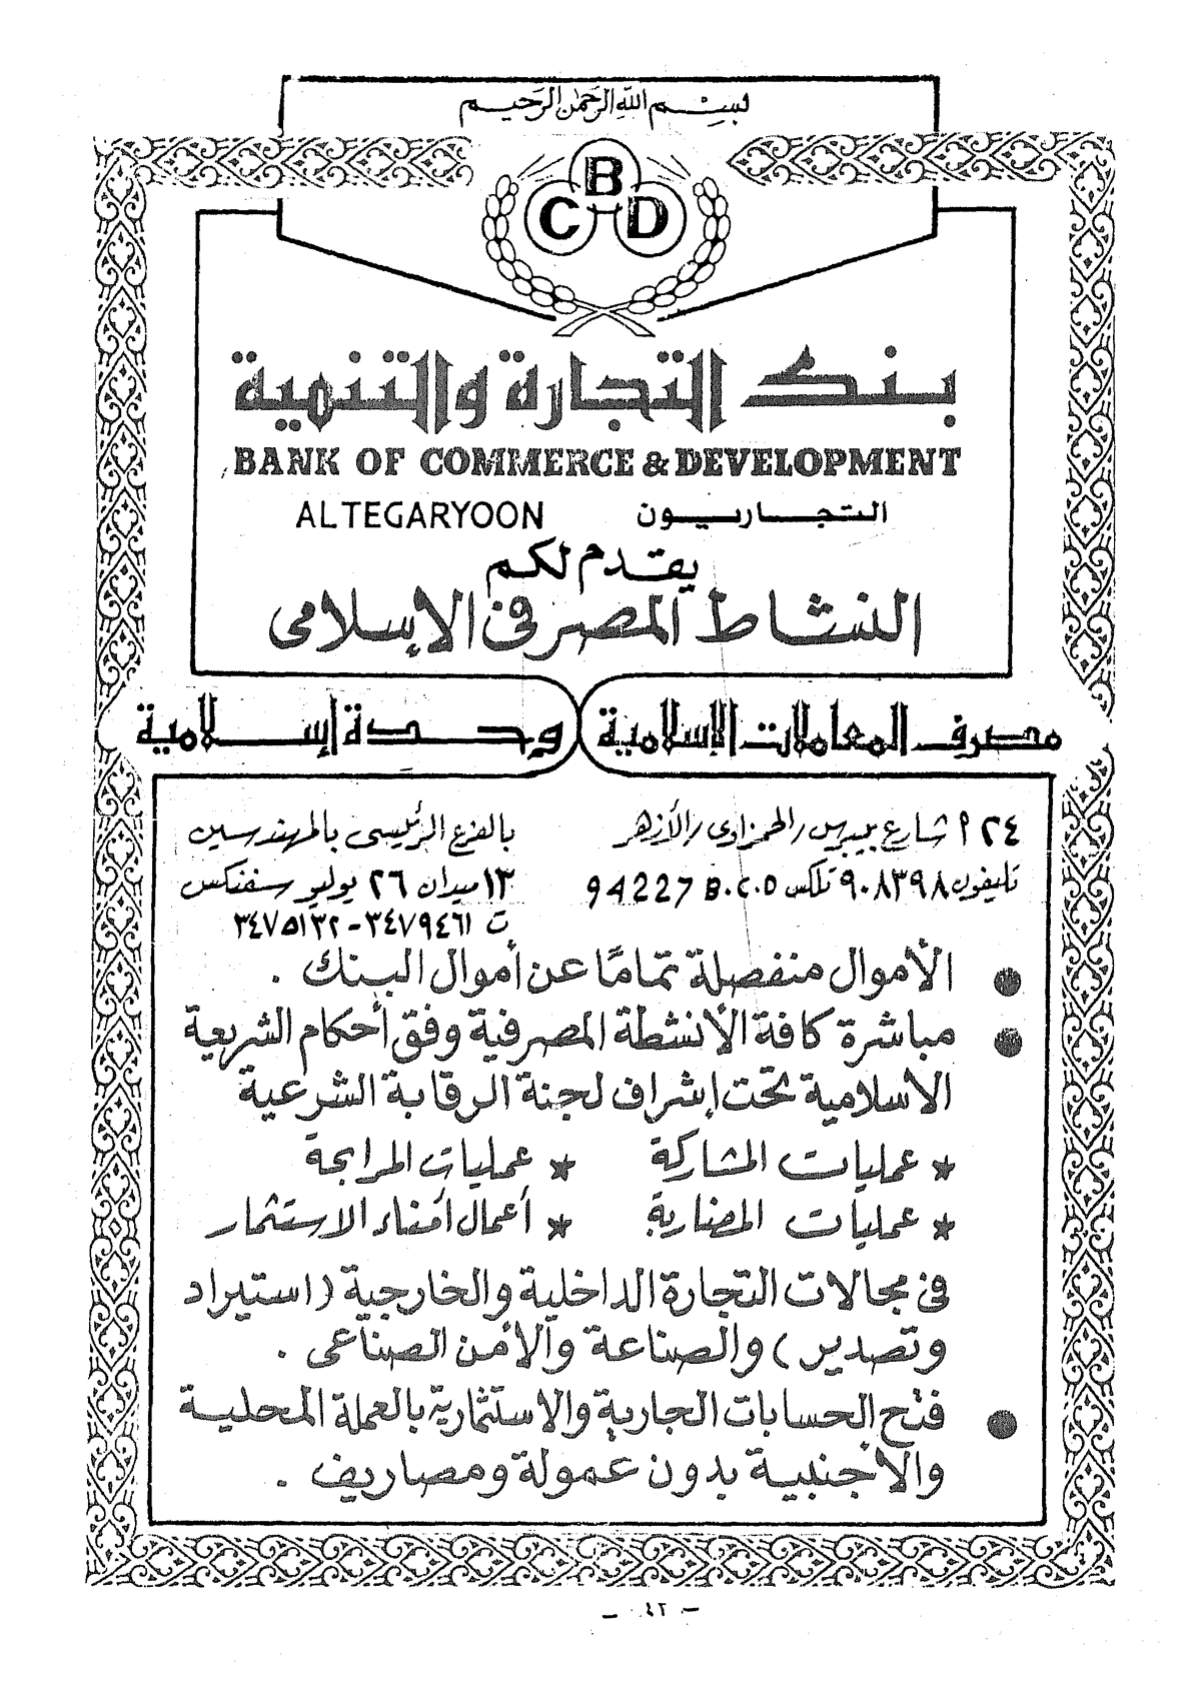 بسم الله الرحمن الرحيم
B
C D
بنك التجارة والتنمية
BANK OF COMMERCE & DEVELOPMENT
ALTEGARYOON التجاريون
يقدم لكم
النشاط المصرفى الإسلامى
مصرف المعاملات الإسلامية
٢٤ أ شارع بيبرس / الحمزاوى / الأزهر
تليفون ٩٠٨٣٩٨ تلكس 94227 B.C.D
وحدة إسلامية
بالفرع الرئيسى بالمهندسين
١٣ ميدان ٢٦ يوليو سفنكس
ت ٣٤٧٩٤٦١ - ٣٤٧٥١٣٢
● الأموال منفصلة تمامًا عن أموال البنك .
● مباشرة كافة الأنشطة المصرفية وفق أحكام الشريعة
الاسلامية تحت إشراف لجنة الرقابة الشرعية
* عمليات المشاركة * عمليات المرابحة
* عمليات المضاربة * أعمال أمناء الاستثمار
فى مجالات التجارة الداخلية والخارجية (استيراد
وتصدير) والصناعة والأمن الصناعى .
● فتح الحسابات الجارية والاستثمارية بالعملة المحلية
والأجنبية بدون عمولة ومصاريف .
- ٤٢ -